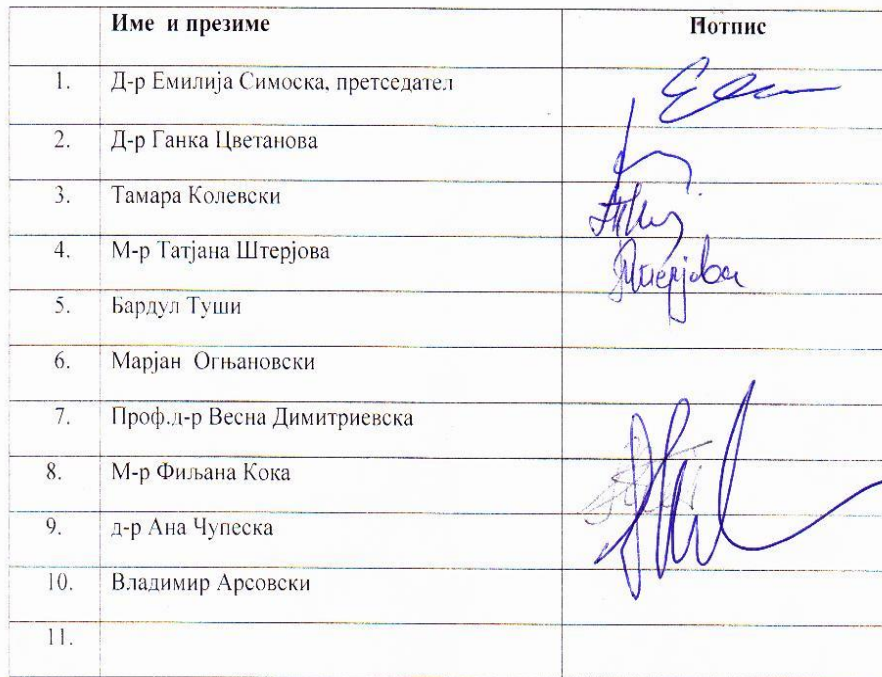 Име и презиме Потпис
1. Д-р Емилија Симоска, претседател
2. Д-р Ганка Цветанова
3. Тамара Колевски
4. М-р Татјана Штерјова
5. Бардул Туши
6. Марјан Огњановски
7. Проф.д-р Весна Димитриевска
8. М-р Фиљана Кока
9. д-р Ана Чупеска
10. Владимир Арсовски
11.